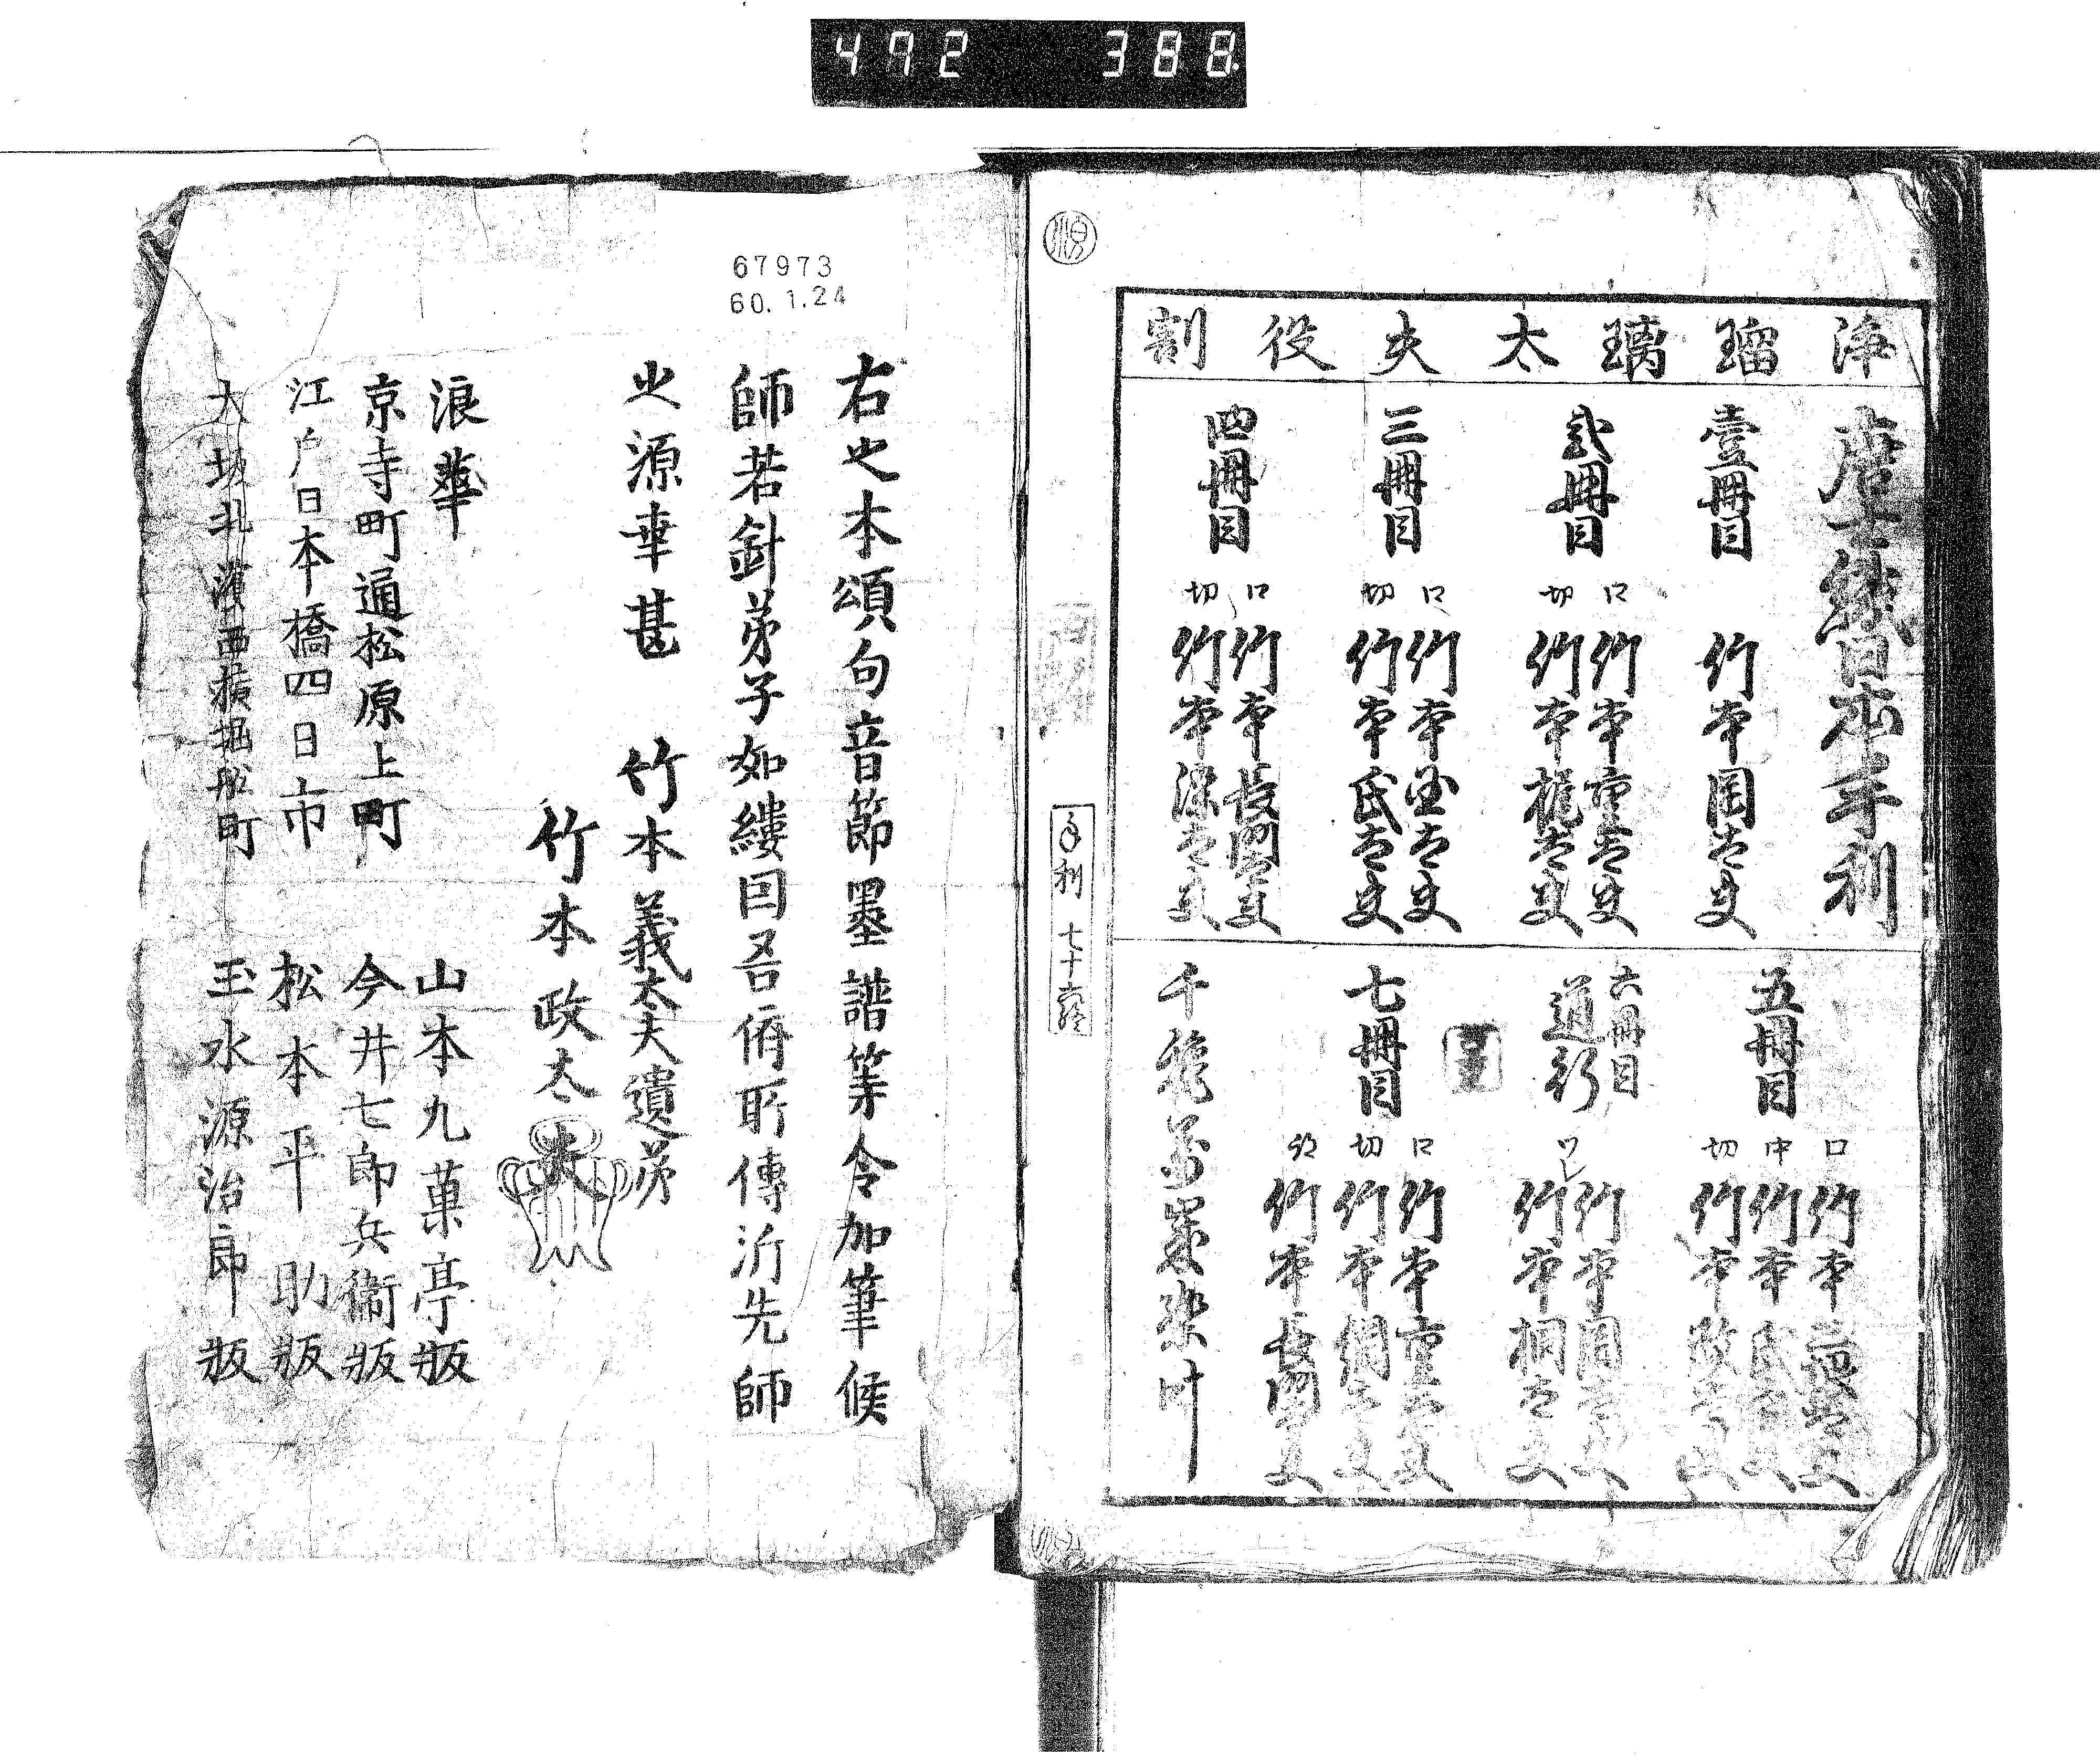 472 388
浄瑠璃太夫役割
唐土織日本手利
壹冊目
竹本 岡太夫
貳冊目
口 竹本 重太夫
切 竹本 梶太夫
三冊目
口 竹本 政太夫
切 竹本 氏太夫
四冊目
口 竹本 長門太夫
切 竹本 染太夫
五冊目
口 竹本
中 竹本 氏太夫
切 竹本 政太夫
六冊目
道行
竹本 岡太夫
竹本 桐太夫
七冊目
口 竹本 重太夫
切 竹本 綱太夫
竹本 長門太夫
千穐万歳楽叶
手利 七十六終
67973
60. 1.24
右之本頌句音節墨譜等令加筆候
師若針弟子如縷因吾儕所傳泝先師
之源幸甚 竹本義太夫遺弟
竹本政太夫
浪華 山本九菓亭版
京寺町通松原上町 今井七郎兵衛版
江戸日本橋四日市 松本平助版
大坂北濱西横堀舩町 玉水源治郎版